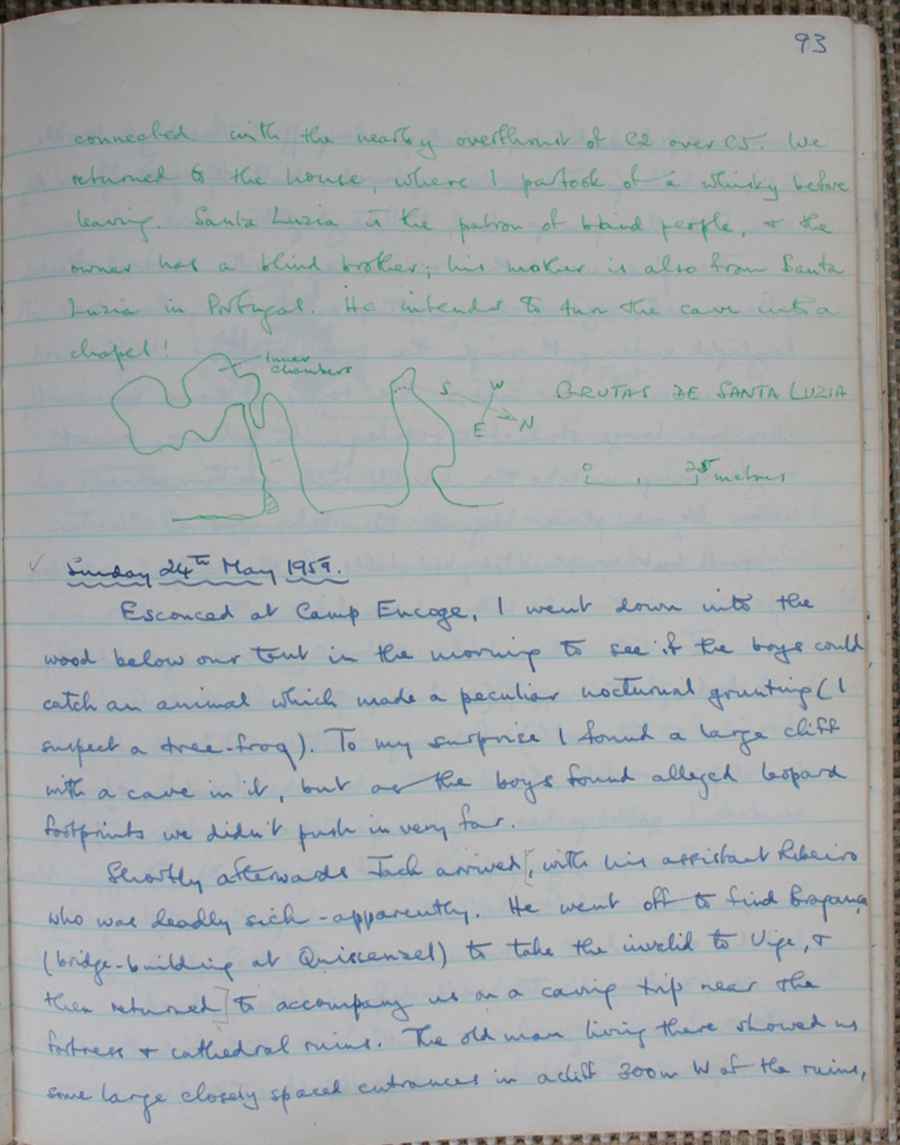 93
connected with the nearby overthrust of C2 over C5. We
returned to the house, where I partook of a whisky before
leaving. Santa Luzia is the patron of blind people, & the
owner has a blind brother; his mother is also from Santa
Luzia in Portugal. He intends to turn the cave into a
chapel!
inner
chambers
S W
E N
GRUTAS DE SANTA LUZIA
0 25 metres
Sunday 24th May 1959.
Esconced at Camp Encoge, I went down into the
wood below our tent in the morning to see if the boys could
catch an animal which made a peculiar nocturnal grunting (I
suspect a tree-frog). To my surprise I found a large cliff
with a cave in it, but as the boys found alleged leopard
footprints we didn't push in very far.
Shortly afterwards Jack arrived[, with his assistant Ribeiro
who was deadly sick - apparently. He went off to find Bragança
(bridge-building at Quiscenzel) to take the invalid to Uige, &
then returned] to accompany us on a caving trip near the
fortress & cathedral ruins. The old man living there showed us
some large closely spaced entrances in a cliff 300m W of the ruins,